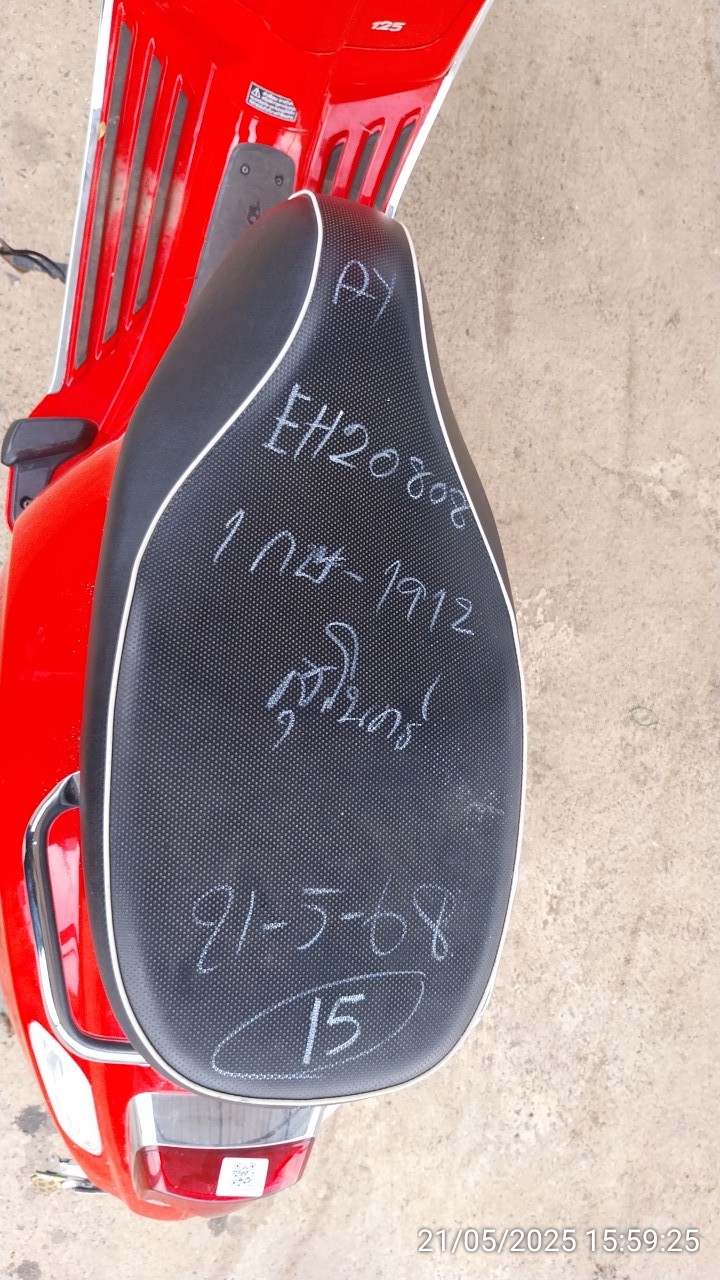 125
RY
EH20808
1กษ-1912
สุรินทร์
21-5-68
15
21/05/2025 15:59:25